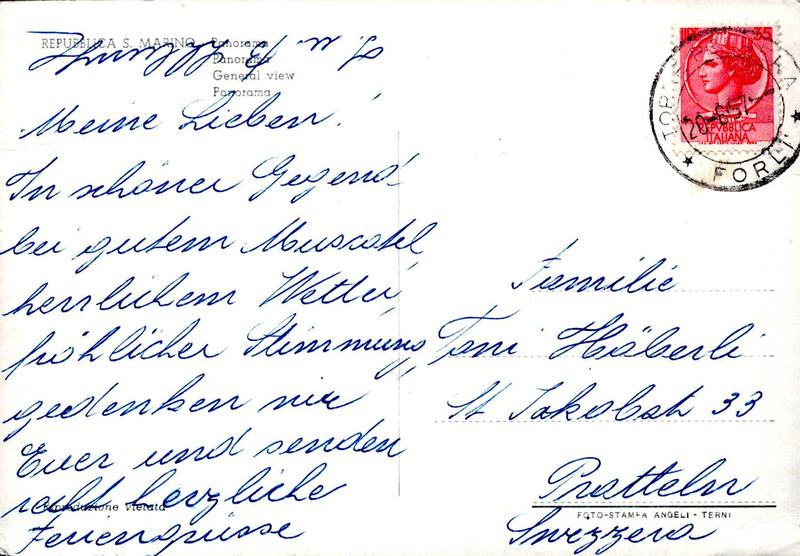 REPUBBLICA S. MARINO - Panorama
Panorama
General view
Panorama
Meine Lieben!
In schöner Gegend
bei gutem Muscatel,
herrlichem Wetter,
fröhlicher Stimmung,
gedenken wir
Euer und senden
recht herzliche
Feriengrüsse
LIRE 35
REPUBBLICA
ITALIANA
20-6-57
FORLI'
Familie
Toni Häberli
St Jakobstr 33
Pratteln
Svizzera
Riproduzione vietata
FOTO-STAMPA ANGELI - TERNI